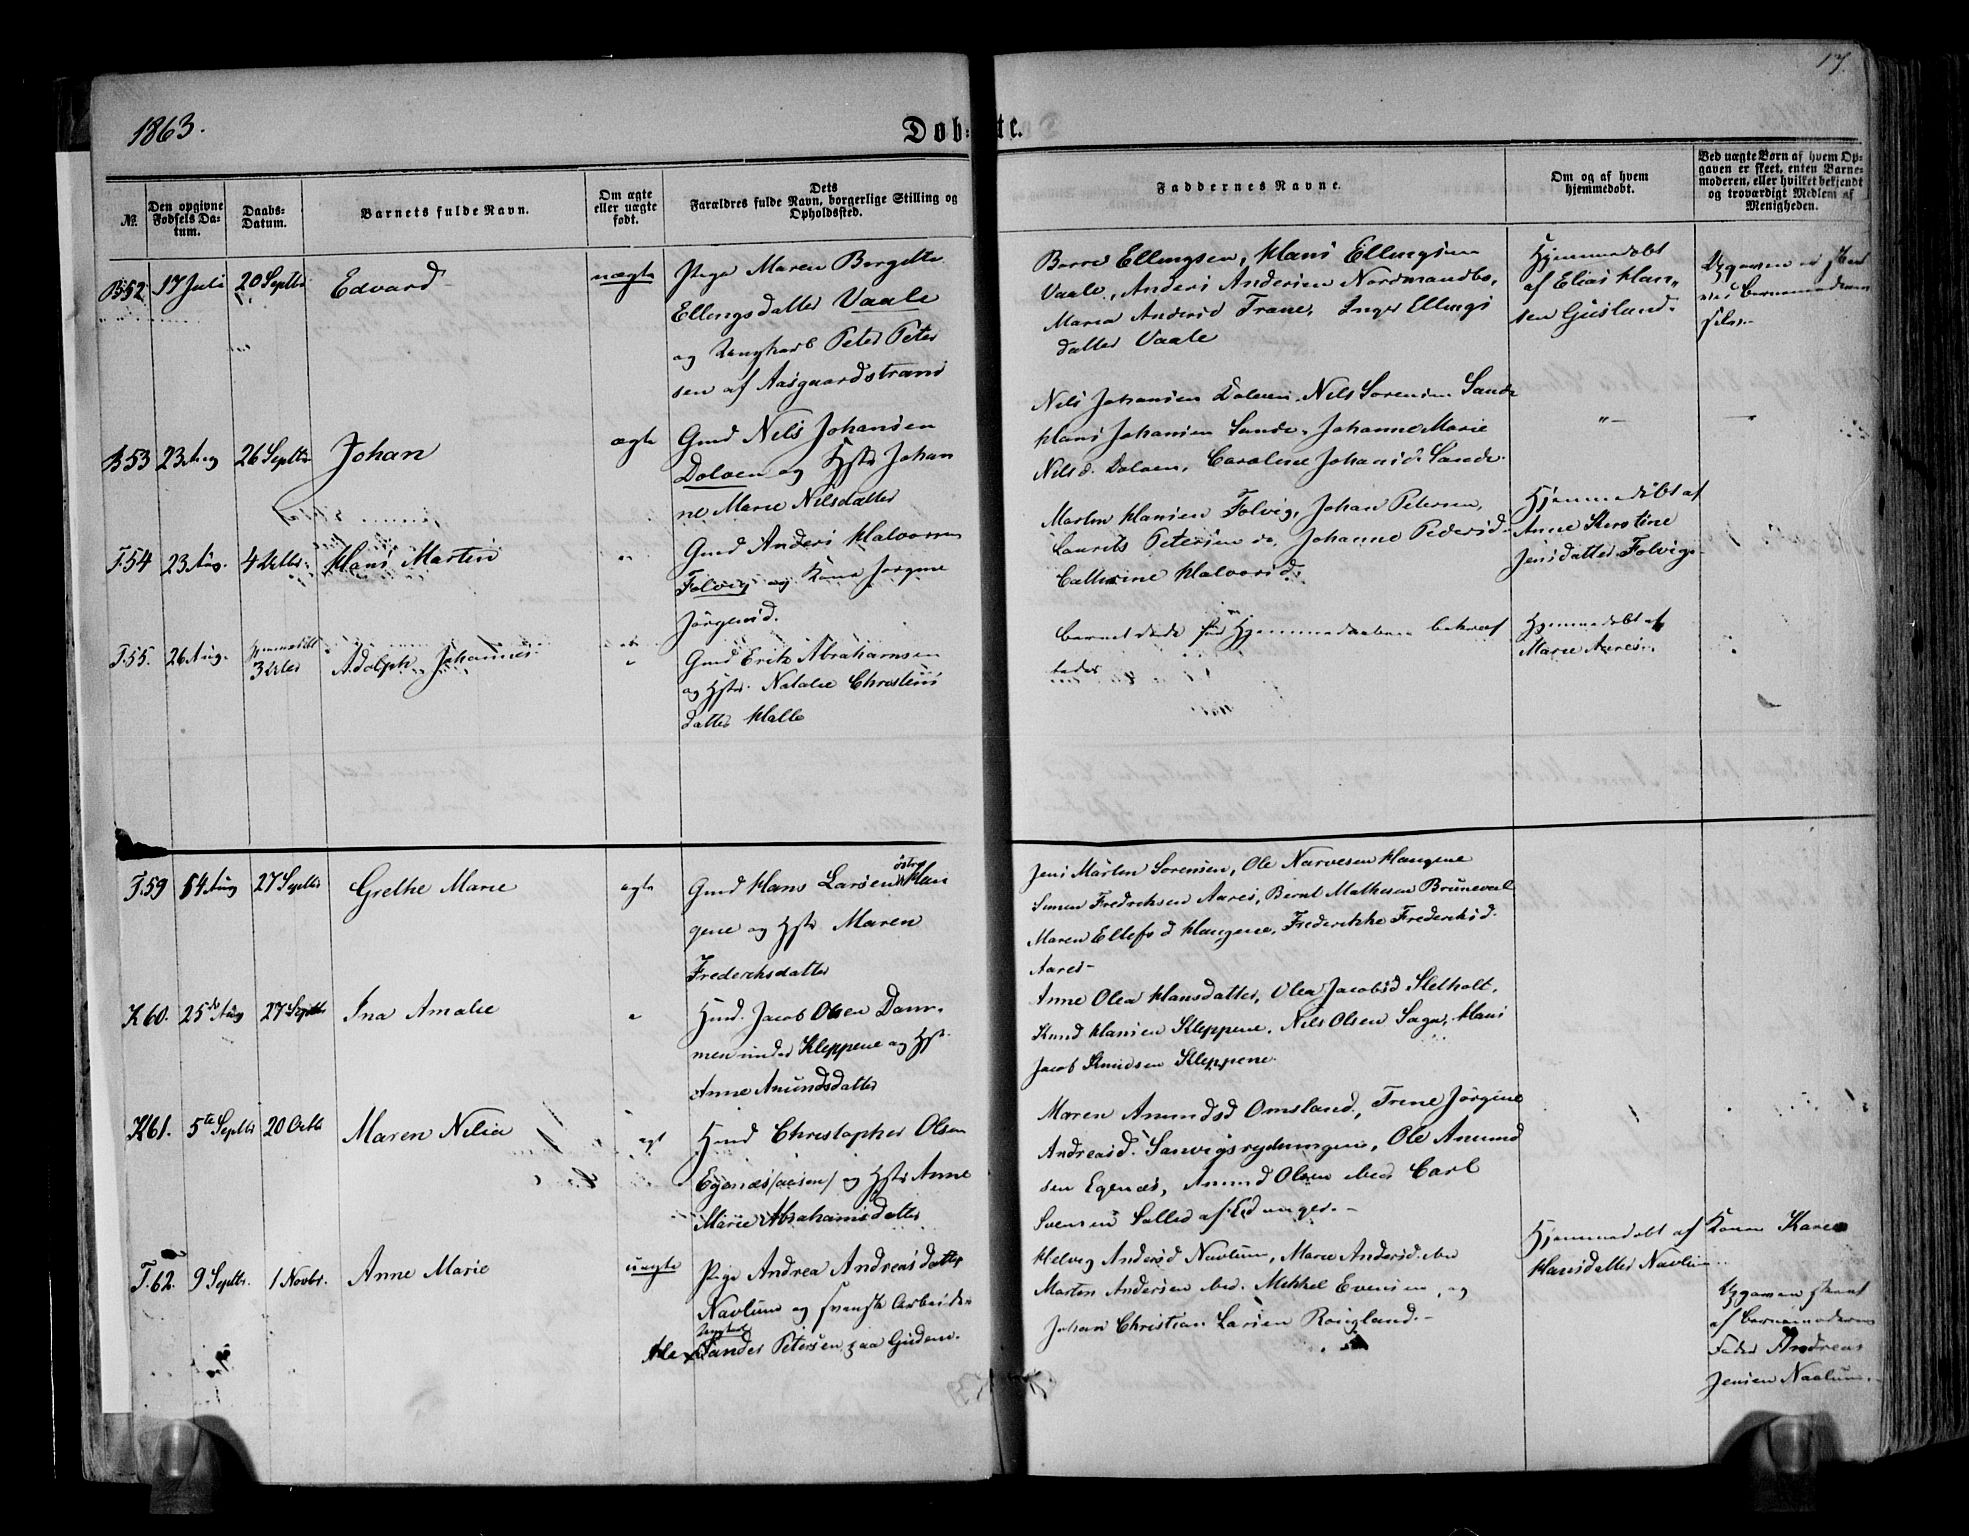 17.
1863.
Døb-te.
No.
Den opgivne Fødsels Da-tum.
Daabs-Datum.
Barnets fulde Navn.
Om ægte eller uægte født.
Dets Forældres fulde Navn, borgerlige Stilling og Opholdssted.
Faddernes Navne.
Om og af hvem hjemmedøbt.
Ved uægte Børn af hvem Op-gaven er skeet, enten Barne-moderen, eller hvilket bekjendt og troværdigt Medlem af Menigheden.
B52. 17 Juli 20 Septbr Edvard uægte
Pige Maren Bergitte
Ellingsdatter Vaale
og Ungkarl Peter Peter
sen af Aasgaardstrand
Borre Ellingsen, Hans Ellingsen
Vaale, Anders Andersen Nordmandbo,
Maren Andersd Trane, Inger Ellings
datter Vaale
Hjemmedøbt
af Elias Han-
sen Gislund.
Opgaven er skeet
ved Barnemoderen
selv.
B53 23 Aug 26 Septbr Johan ægte
Gmd Nils Johansen
Dolven og Hstr Johan
ne Marie Nilsdatter
Nils Johansen Dolven, Nils Sorensen Sande
Hans Johansen Sande, Johanne Marie
Nilsd. Dolven, Caroline Johansd. Sande.
"-
T.54 23 Aug. 4 Octbr. Hans Martin "
Gmd Anders Halvorsen
Folvig og Kone Jorgine
Jörgensd.
Morten Hansen Folvig, Johan Petersen,
Laurits Petersen do, Johanne Pedersd.
Cathrine Halvorsd.
Hjemmedøbt af
Anne Kirstine
Jensdatter Folvig.
T.55. 26 Aug. Hjemmedöbt 3 Octbr Adolph Johannes "
Gmd Erik Abrahamsen
og Hstr. Natalie Christens
datter Halle
Barnet døde før Hjemmedaaben bekræf
tedes
Hjemmedøbt af
Marie Aares.
T.59 14 Aug 27 Septbr Grethe Marie ægte
Gmd Hans Larsen östre Hau
gene og Hstr Maren
Frederiksdatter
Jens Martin Sorensen, Ole Narvesen Haugene
Simen Fredriksen Aares, Bernt Mathesen Brunevall
Maren Ellefsd Haugene, Frederikke Frederiksd.
Aares-
K60. 25de Aug 27 Septbr Ina Amalie "
Hmd. Jacob Olsen Dam-
men under Kleppene og Hst.
Anne Amundsdatter
Anne Olea Hansdatter, Olea Jacobsd Sletholt,
Knud Hansen Kleppene, Nils Olsen Saga, Hans
Jacob Knudsen Kleppene.
K61. 5te Septbr 20 Octb Maren Nilia ægt
Hmd Christopher Olsen
Egenæs og Hstr Anne
Marie Abrahamsdatter
Maren Amundsd Omsland, Trine Jörgine
Andreasd. Sanvigsrydningen, Ole Amund
sen Egenæs, Amund Olsen ibid Carl
Svensen
T.62. 9 Septbr. 1 Novbr. Anne Marie uægte
Pige Andrea Andreasdatter
Navlum og svensk Arbeider
Ungkarl
Alexander Petersen paa Gudem.
Helvig Andersd Navlum, Maren Andersd. ibid
Morten Andersen ibid. Mikkel Evensen, og
Johan Christian Larsen Röigland.-
Hjemmedøbt af Konen Karen
Hansdatter Navlum.
Opgaven skeet
af Barnemoderens
Fader Andreas
Jensen Navlum.